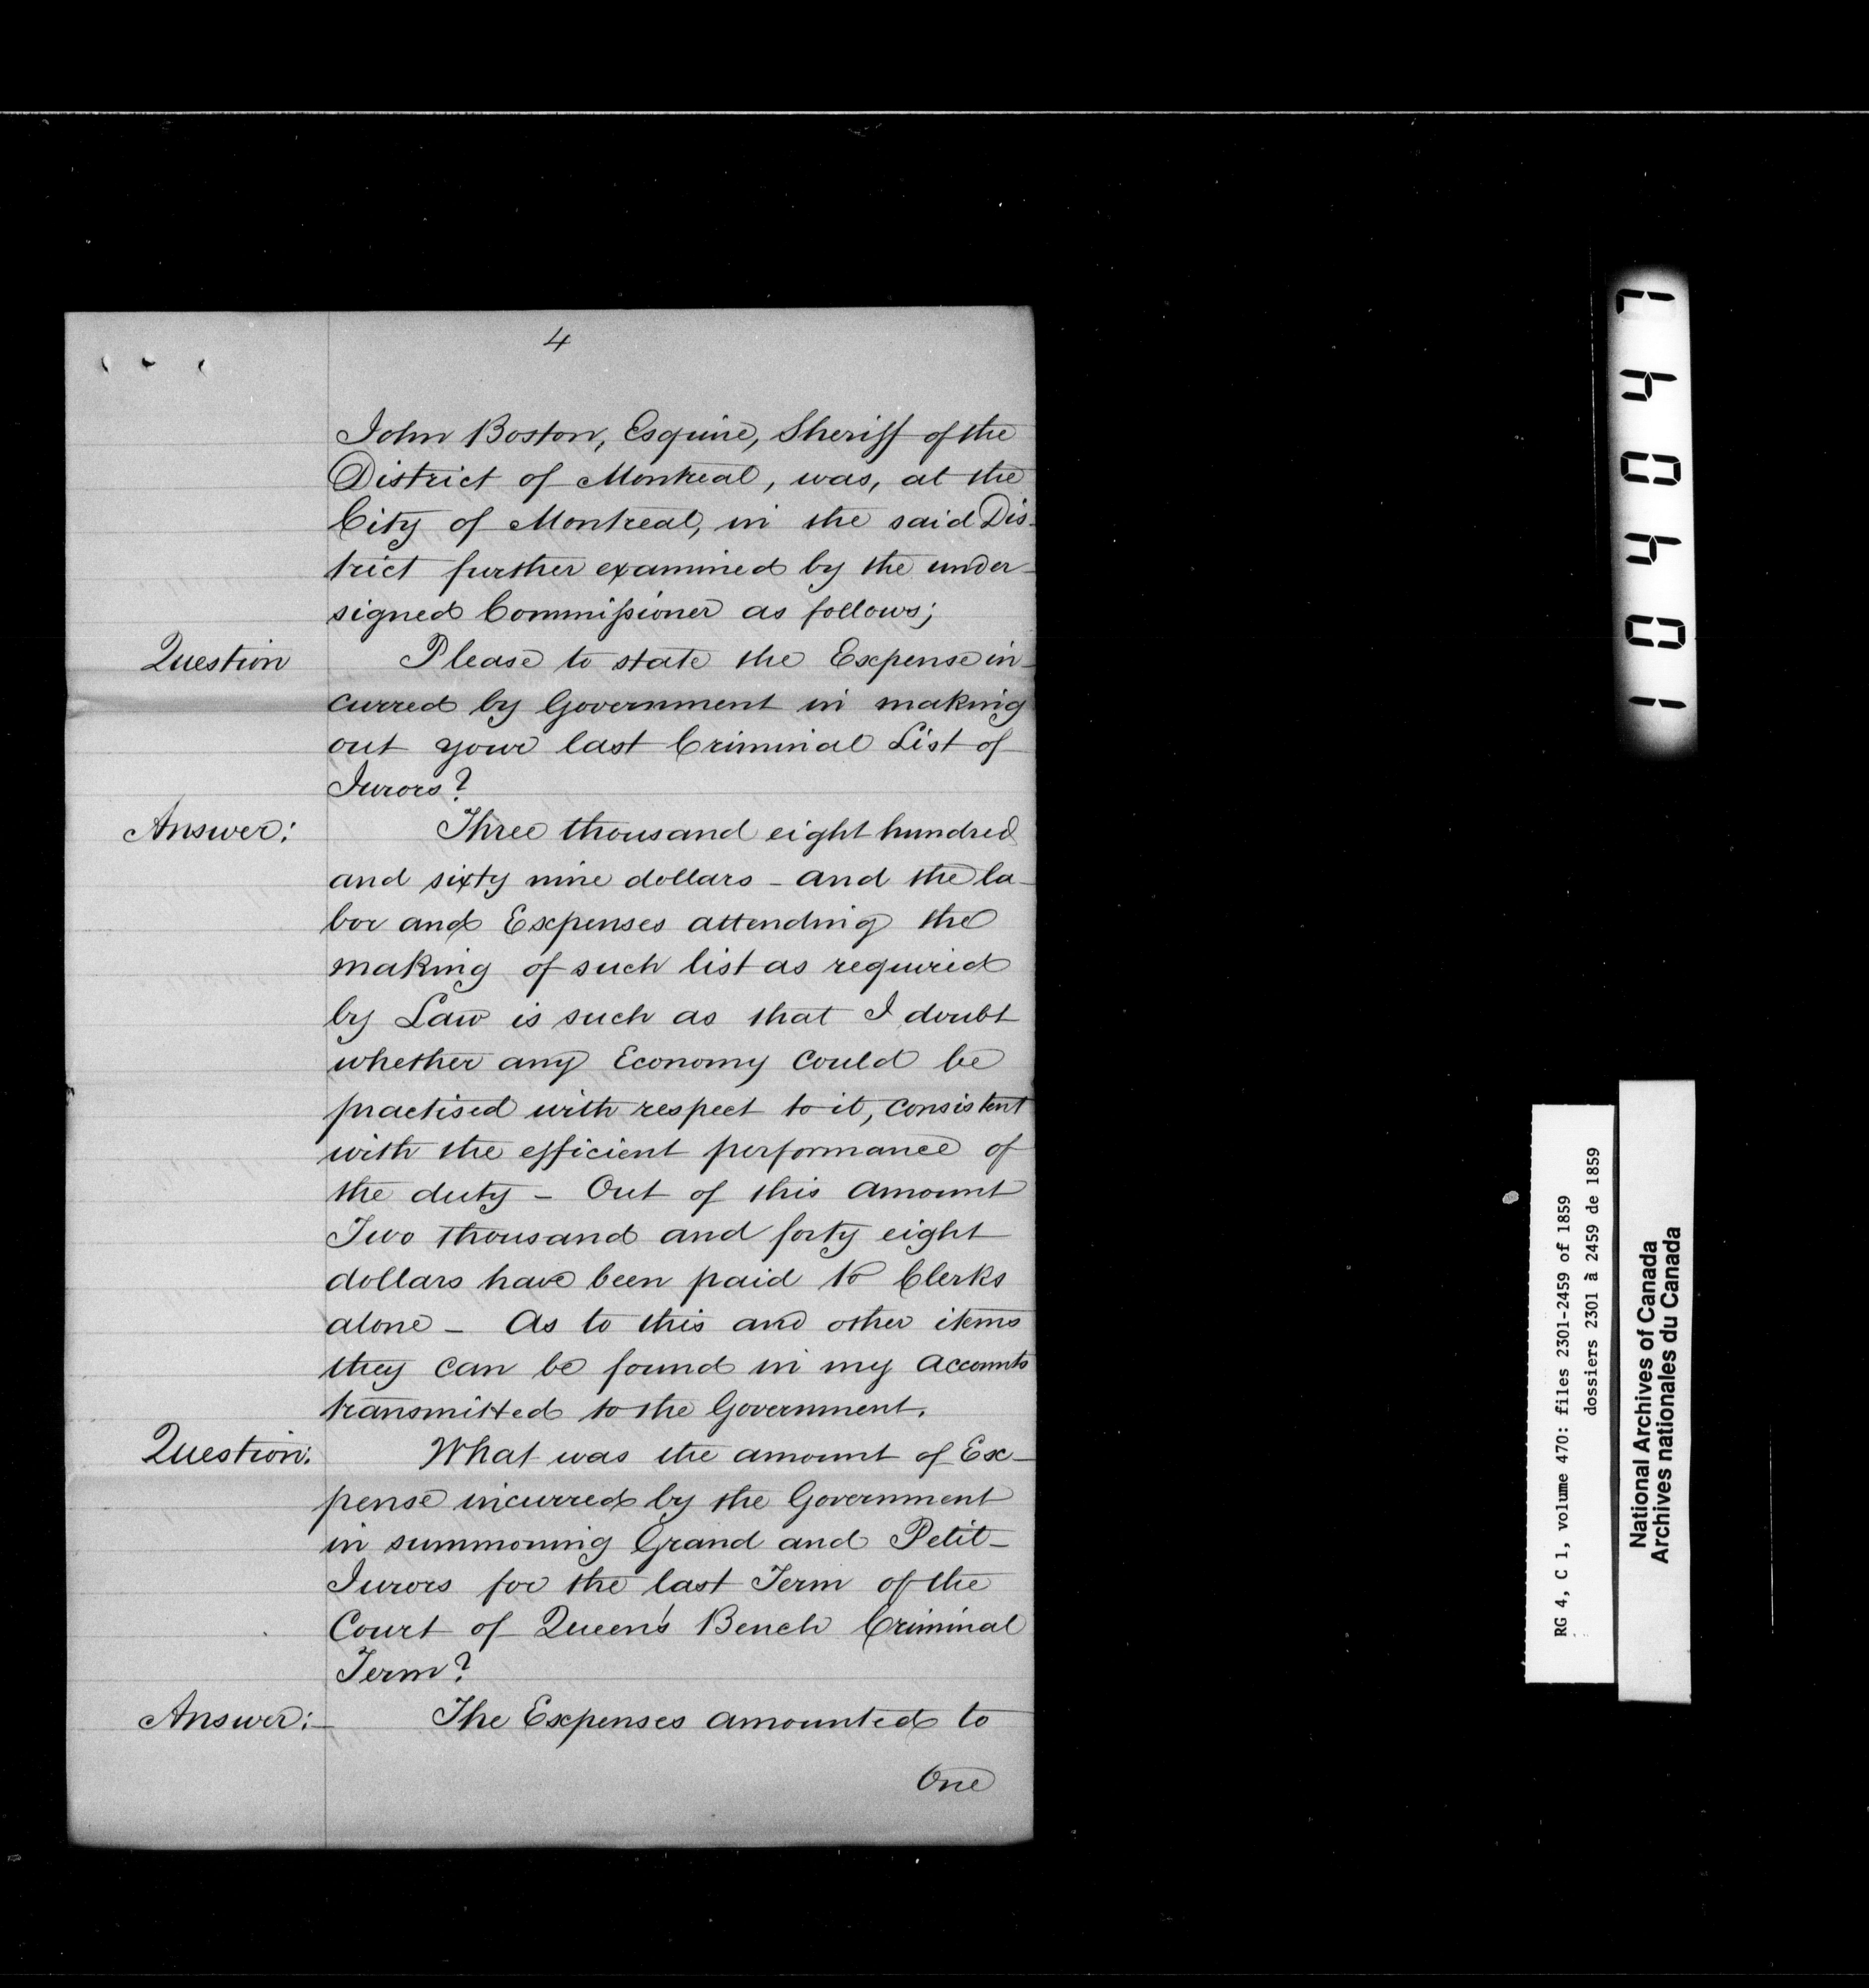 4
John Boston, Esquire, Sheriff of the
District of Montreal, was, at the
City of Montreal, in the said Dis-
trict further examined by the under-
signed Commissioner as follows;
Question Please to state the Expense in-
curred by Government in making
out your last Criminal List of
Jurors?
Answer: Three thousand eight hundred
and sixty nine dollars - and the la-
bor and Expenses attending the
making of such list as required
by Law is such as that I doubt
whether any Economy could be
practised with respect to it, consistent
with the efficient performance of
the duty - Out of this amount
Two thousand and forty eight
dollars have been paid to Clerks
alone - As to this and other items
they can be found in my accounts
transmitted to the Government.
Question: What was the amount of Ex-
pense incurred by the Government
in summoning Grand and Petit-
Jurors for the last Term of the
Court of Queen's Bench Criminal
Term?
Answer:- The Expenses amounted to
One
104047
RG 4, C 1, volume 470: files 2301-2459 of 1859
dossiers 2301 à 2459 de 1859
National Archives of Canada
Archives nationales du Canada